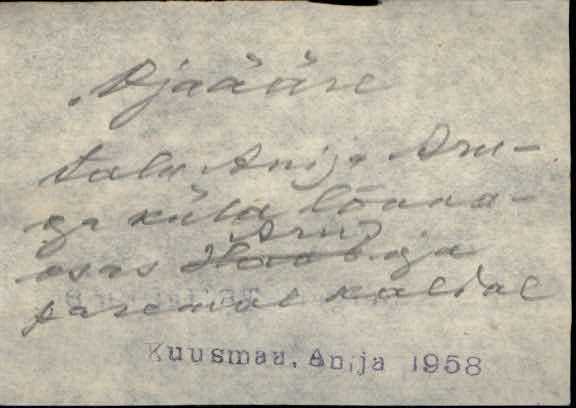 Ojaääre
talu Anija Aru-
ga küla lõuna-
Aru
osas jõga
paremal kaldal
Kuusmaa, Anija 1958